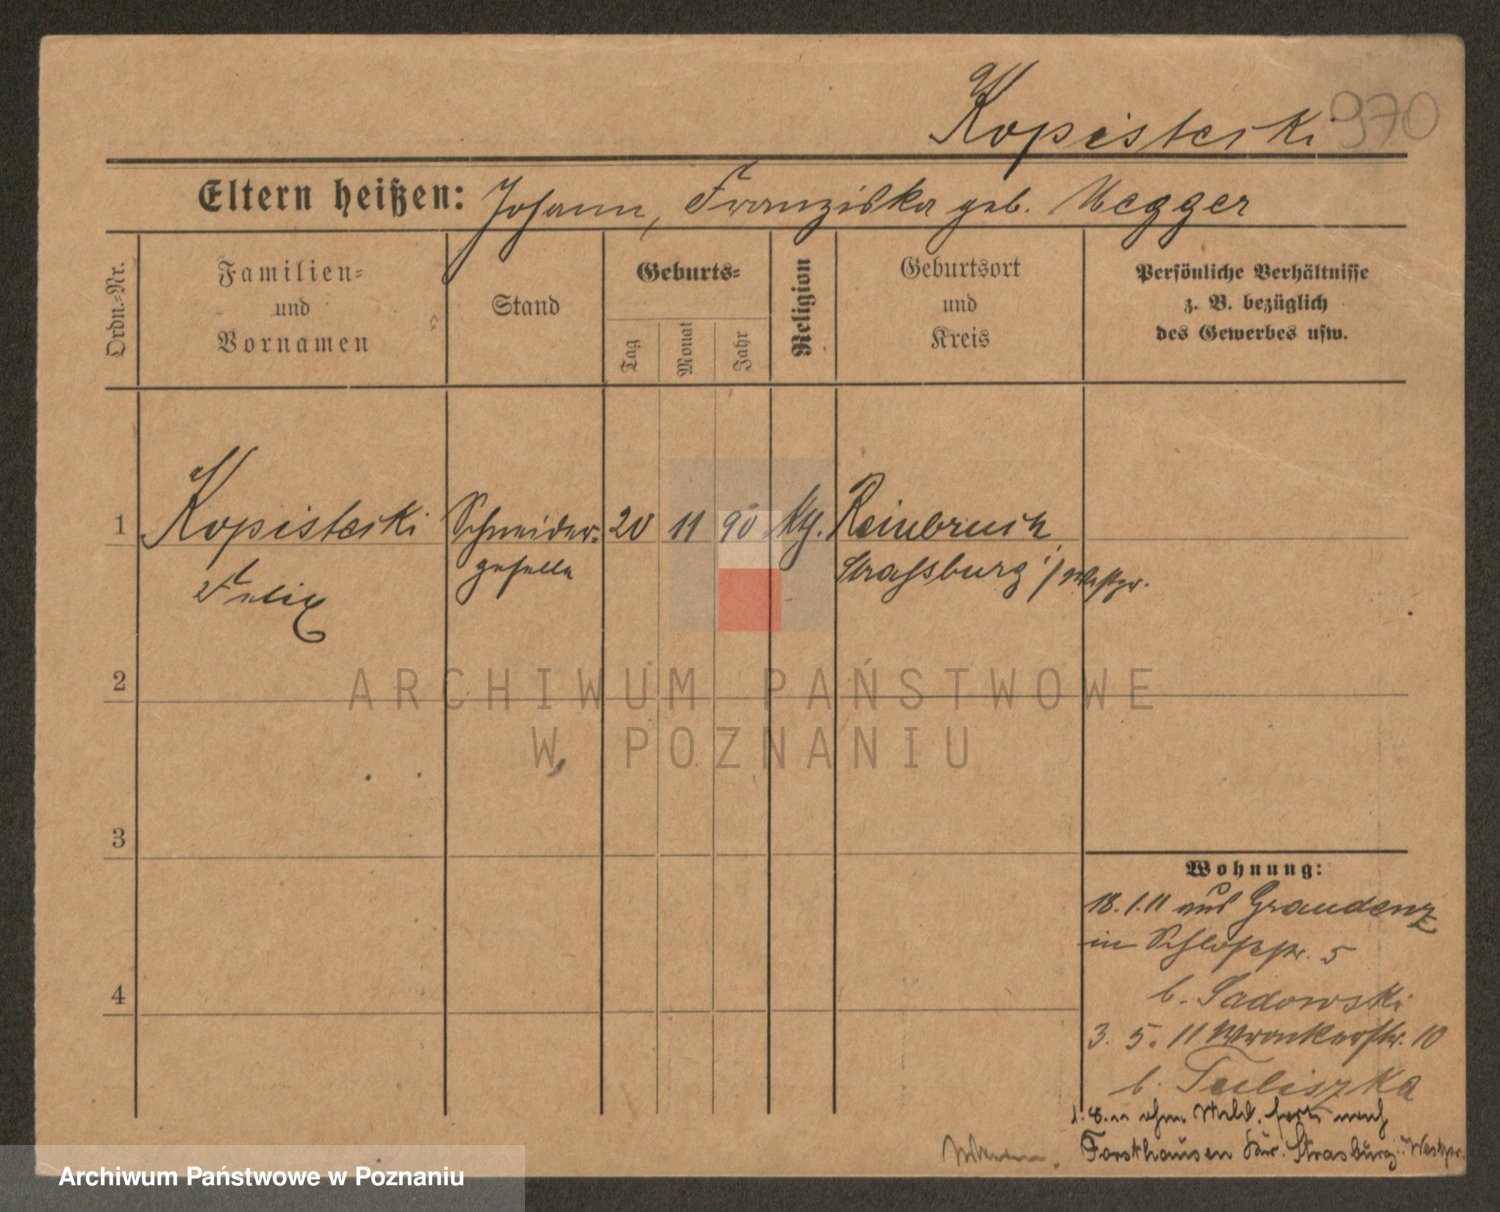 Kopisteski 970
Eltern heißen: Johann, Franziska geb. Negger
Ordn.-Nr.
Familien-
und
Vornamen
Stand
Geburts-
Tag
Monat
Jahr
Religion
Geburtsort
und
Kreis
Persönliche Verhältnisse
z. B. bezüglich
des Gewerbes usw.
1 Kopisteski Schneider- 20 11 90 Reinbruch
Felix geselle Strassburg i/Westpr.
2
3
4
ARCHIWUM PAŃSTWOWE
W POZNANIU
Wohnung:
18.1.11 aus Graudenz
in Schloßstr. 5
b. Sadowski
3. 5. 11 Wronkerstr. 10
b. Tuliszka
ohne Meld. fort nach
Forsthausen Kr. Strasburg Westpr.
Archiwum Państwowe w Poznaniu